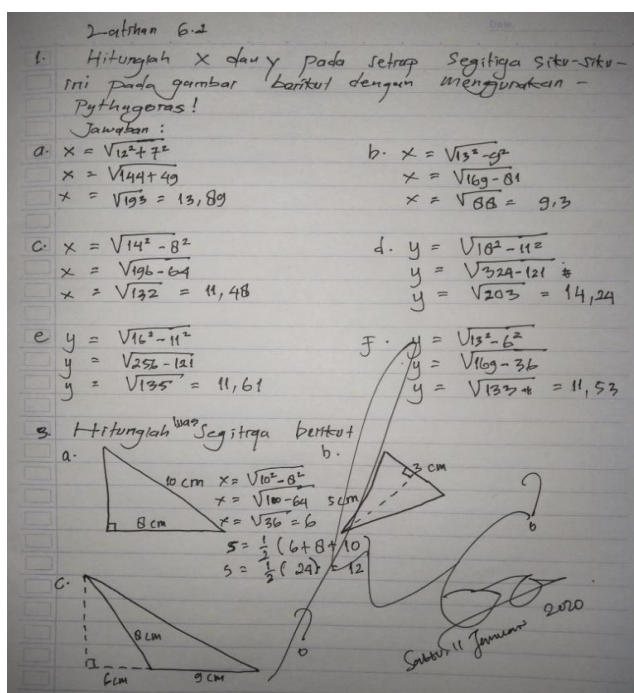 Latihan 6.2
1. Hitunglah x dan y pada setiap segitiga siku-siku-
ini pada gambar berikut dengan menggunakan -
Pythagoras!
Jawaban :
a. x = √12² + 7²
x = √144 + 49
x = √193 = 13,89
b. x = √13² - 9²
x = √169 - 81
x = √88 = 9,3
c. x = √14² - 8²
x = √196 - 64
x = √132 = 11,48
d. y = √18² - 11²
y = √324 - 121
y = √203 = 14,24
e y = √16² - 11²
y = √256 - 121
y = √135 = 11,61
f. y = √13² - 6²
y = √169 - 36
y = √133 = 11,53
3. Hitunglah luas segitiga berikut
a.
10 cm
8 cm
x = √10² - 8²
x = √100 - 64
x = √36 = 6
s = ½ (6 + 8 + 10)
s = ½ (24) = 12
b.
3 cm
5 cm
c.
8 cm
6 cm
9 cm
Sabtu 11 Januari 2020